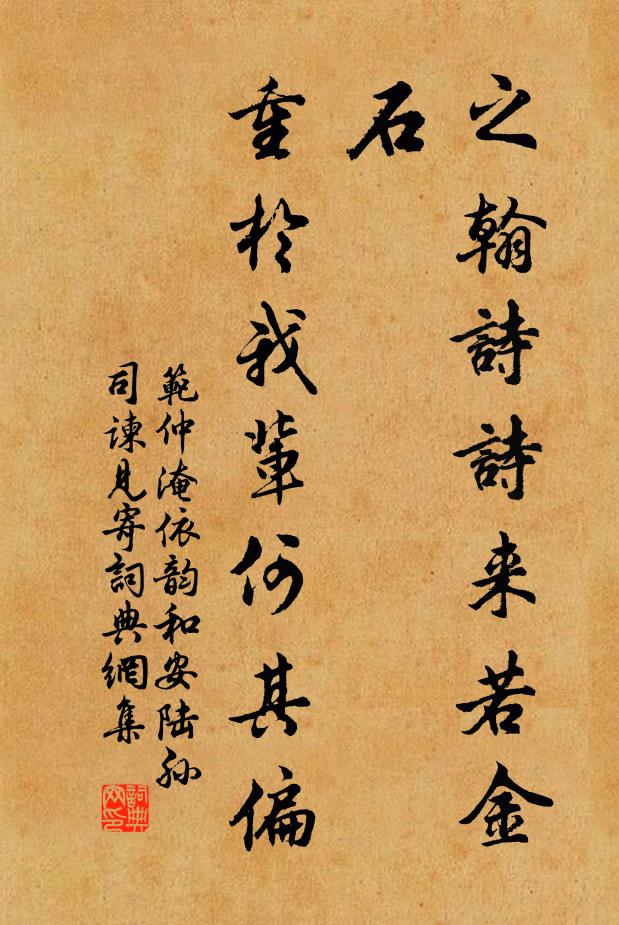 之翰詩詩来若金
石
重於我輩何其偏
範仲淹依韵和安陆孙
司諫見寄詞典網集
詞典
网印